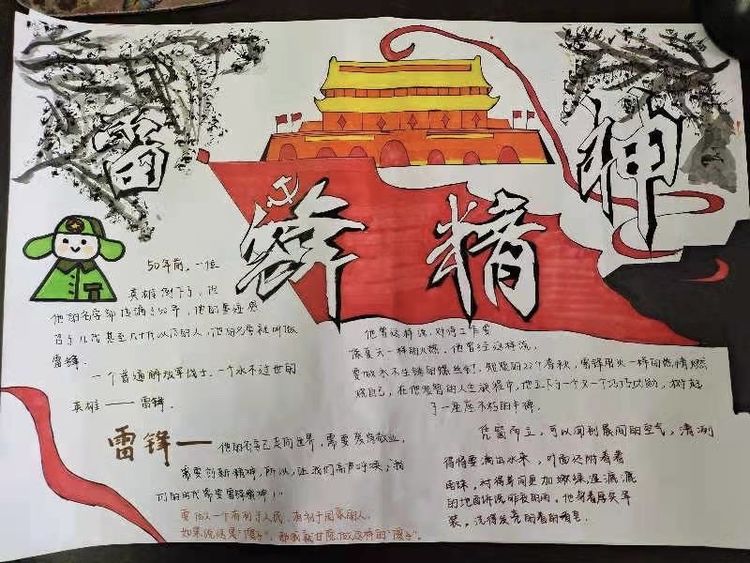 雷
锋
精
神
50年前，一位
英雄倒下了，但
他的名字却传遍了公平，他的
几代甚至几十代以后的人，他的名字就叫做
雷锋。
一个普通解放军战士，一个永不过世的
英雄——雷锋。
他曾这样说，对待工作要
像夏天一样的火热，他曾经这样说，
要做永不生锈的螺丝钉！短短的22个春秋，雷锋用火一样的热情燃
烧自己，在他发智的人生旅程中，他立下了一个又一个巧巧的，树起
了一座永朽的丰碑。
雷锋——他的名字已走向世界，需要爱岗敬业，
需要创新精神，所以，让我们高声呼唤：我
们的时代需要雷锋精神！"
要做一个有利于人民，有利于国家的人。
如果说这是"傻子"，那我就甘愿做这样的"傻子"。
凭窗而立，可以闻到晨间的空气，清冽
得得要滴出水来，叶面还附着着
雨珠，对得草间更加嫩绿，湿漉漉
的地面诉说昨夜的雨。他穿着厚实军
装，洗得发亮的